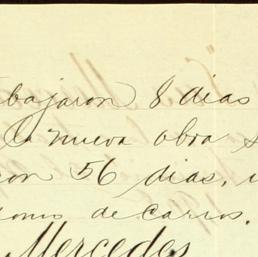 abajaron 8 dias
nueva obra s
ron 56 dias,
de carros.
Mercedes